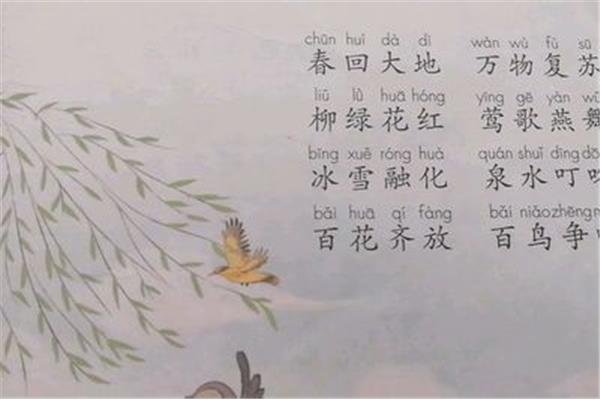 chūn huí dà dì wàn wù fù sū
春回大地 万物复苏
liǔ lǜ huā hóng yīng gē yàn wǔ
柳绿花红 莺歌燕舞
bīng xuě róng huà quán shuǐ dīng
冰雪融化 泉水叮
bǎi huā qí fàng bǎi niǎo zhēng
百花齐放 百鸟争